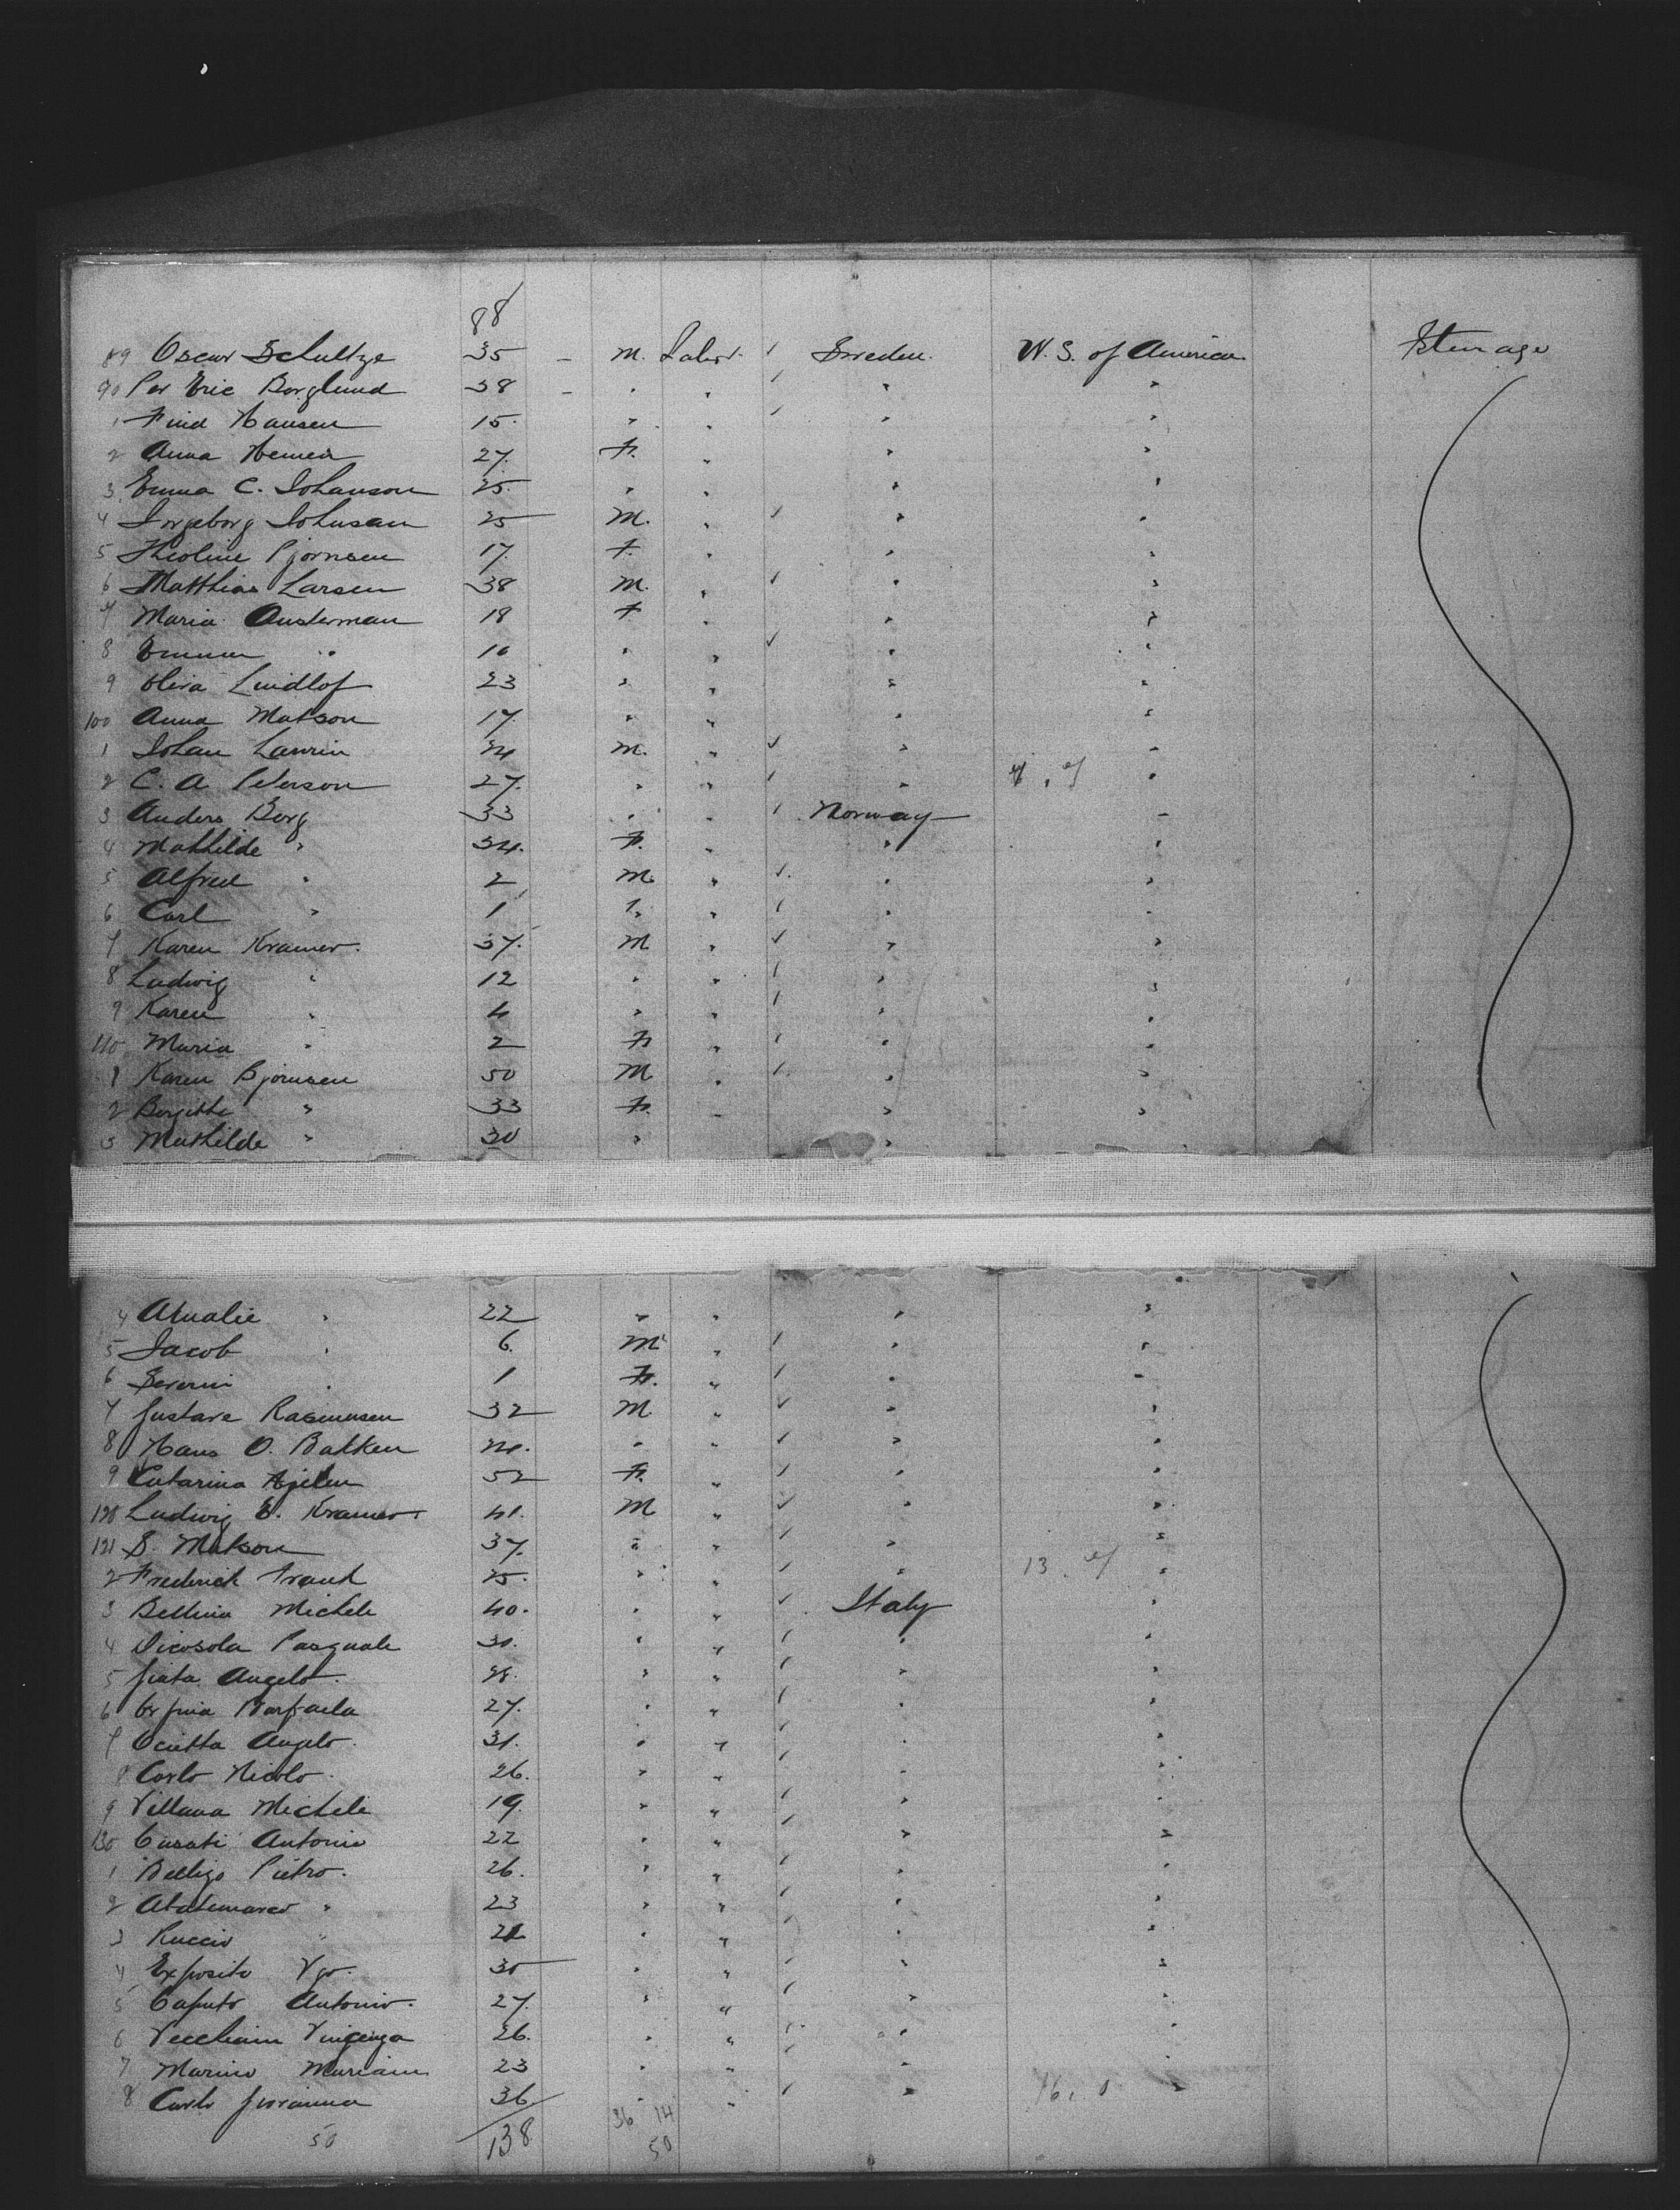 88
89 Oscar Schultze 35 - M. Labor. / Sweden. U. S. of America Steerage
90 Per Eric Borglund 38 - " " / " "
1 Find Hansen 15. " " / " "
2 Anna 27. F. " " "
3 Emma C. Johanson 25. " " " "
4 Ingeborg Johnsan 25 M. " ✓ " "
5 Theoline Pjornsen 17. F. " " "
6 Matthias Larsen 38 M. " / " "
7 Maria Austerman 18 F " " "
8 Emma " 10 " " ✓ " "
9 Olivia Lindlof 23 " " " "
100 Anna Matson 17. " " " "
1 Johan Lawrin 24 M. " ✓ " "
2 C. A. Peterson 27. " " / " "
3 Anders Borg 33 " " / Norway "
4 Mathilde " 34. F. " " "
5 Alfred " 2 M. " ✓ " "
6 Carl " 1 " " / " "
7 Karen Kramer. 37. M " ✓ " "
8 Ludwig " 12 " " / " "
9 Karen " 4 " " / " "
110 Maria " 2 F " / " "
1 Karen Bjornsen 50 M " / " "
2 Bergitte " 33 F. " " "
3 Mathilde " 30 " "
4 Amalie " 22 " " " "
5 Jacob " 6. M " / " "
6 Severni " 1 F. " / " "
7 Gustave Rasmussen 32 M. " ✓ " "
8 Hans O. Bakken 24. " " ✓ " "
9 Catarina 52 F. " / " "
120 Ludwig E. Kramer. 41. M " ✓ " "
121 S. Matson 37. " " / " "
2 Frederick 25. " " / " 13 "
3 Bellina Michele 40. " " ✓ Italy "
4 Dicosola Pasquale 30. " " / " "
5 Angelo. 28. " " / " "
6 Raffaela 27. " " / " "
7 Angelo. 31. " " / " "
8 Carlo Nicolo. 26. " " / " "
9 Villana Michele 19. " " / " "
130 Casati Antonio 22 " " / " "
1 Pietro. 26. " " / " "
2 Abatemarco " 23 " " / " "
3 Ruccio " 21 " " / " "
4 Exposito Vpo. 30 " " / " "
5 Caputo Antonio. 27. " " / " "
6 Vincenza 26. " " / " "
7 Marino 23 " " / " "
8 Carlo Giovanna 36 " " / " "
50 138 36 14
50